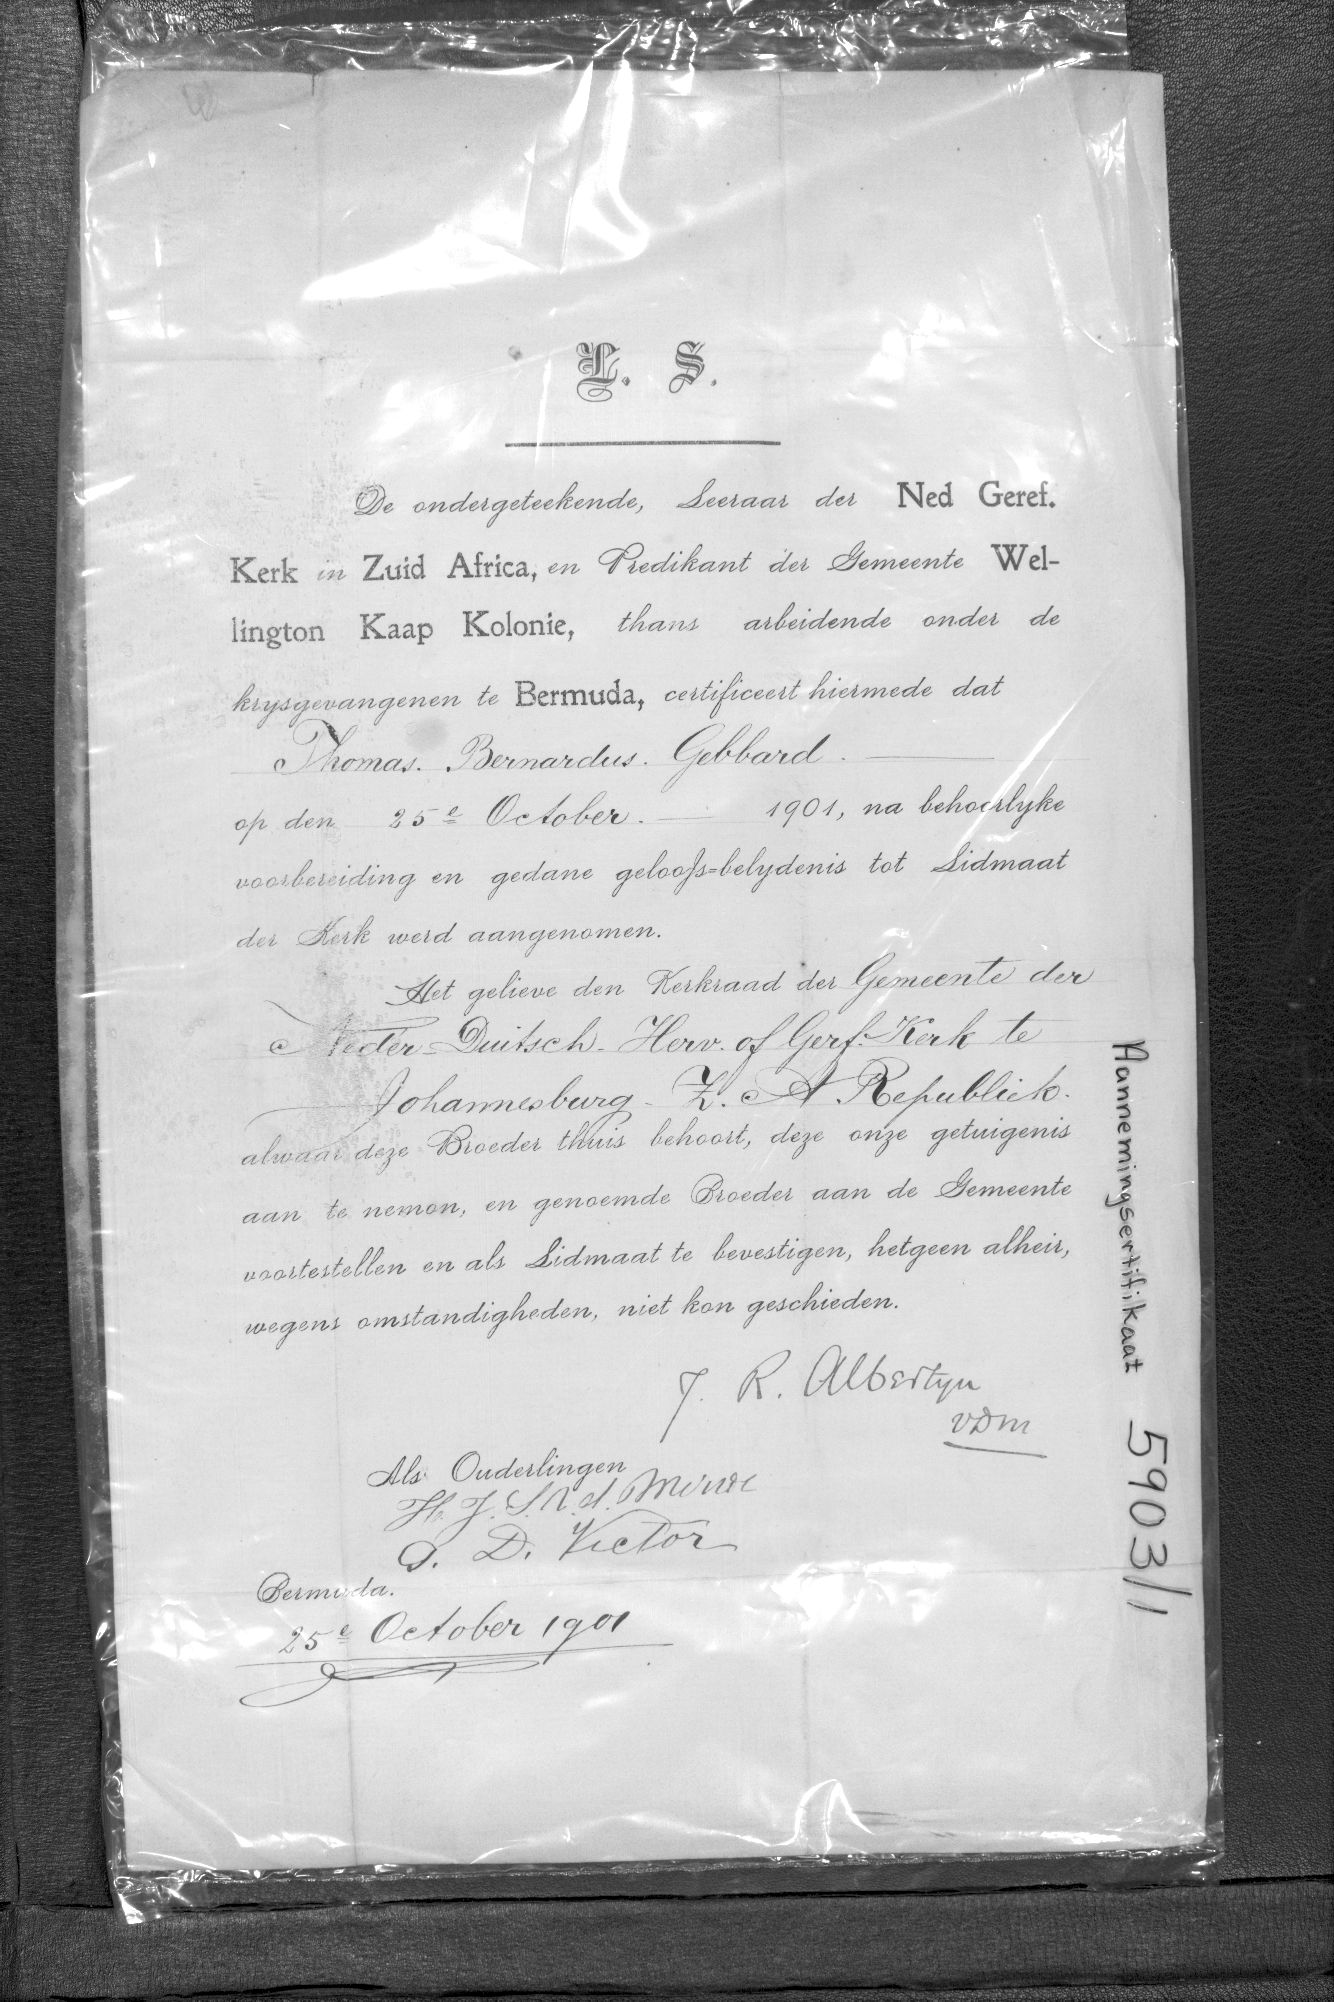 L. S.
De ondergeteekende, Leeraar der Ned Geref.
Kerk in Zuid Africa, en Predikant der Gemeente Wel-
lington Kaap Kolonie, thans arbeidende onder de
krysgevangenen te Bermuda, certificeert hiermede dat
Thomas. Bernardus. Gebbard.
op den 25e October. 1901, na behoorlyke
voorbereiding en gedane geloofs=belydenis tot Lidmaat
der Kerk werd aangenomen.
Het gelieve den Kerkraad der Gemeente der
Neder-Duitsch-Herv. of Gerf. Kerk te
Johannesburg - Z. A Republiek.
alwaar deze Broeder thuis behoort, deze onze getuigenis
aan te nemon, en genoemde Broeder aan de Gemeente
voortestellen en als Lidmaat te bevestigen, hetgeen alheir,
wegens omstandigheden, niet kon geschieden.
J. R. Albertyn
VDM
Als Ouderlingen
H. J. S. v. d. Merwe
D. Victor
Bermuda.
25e October 1901
Aannemingsertifikaat 5903/1